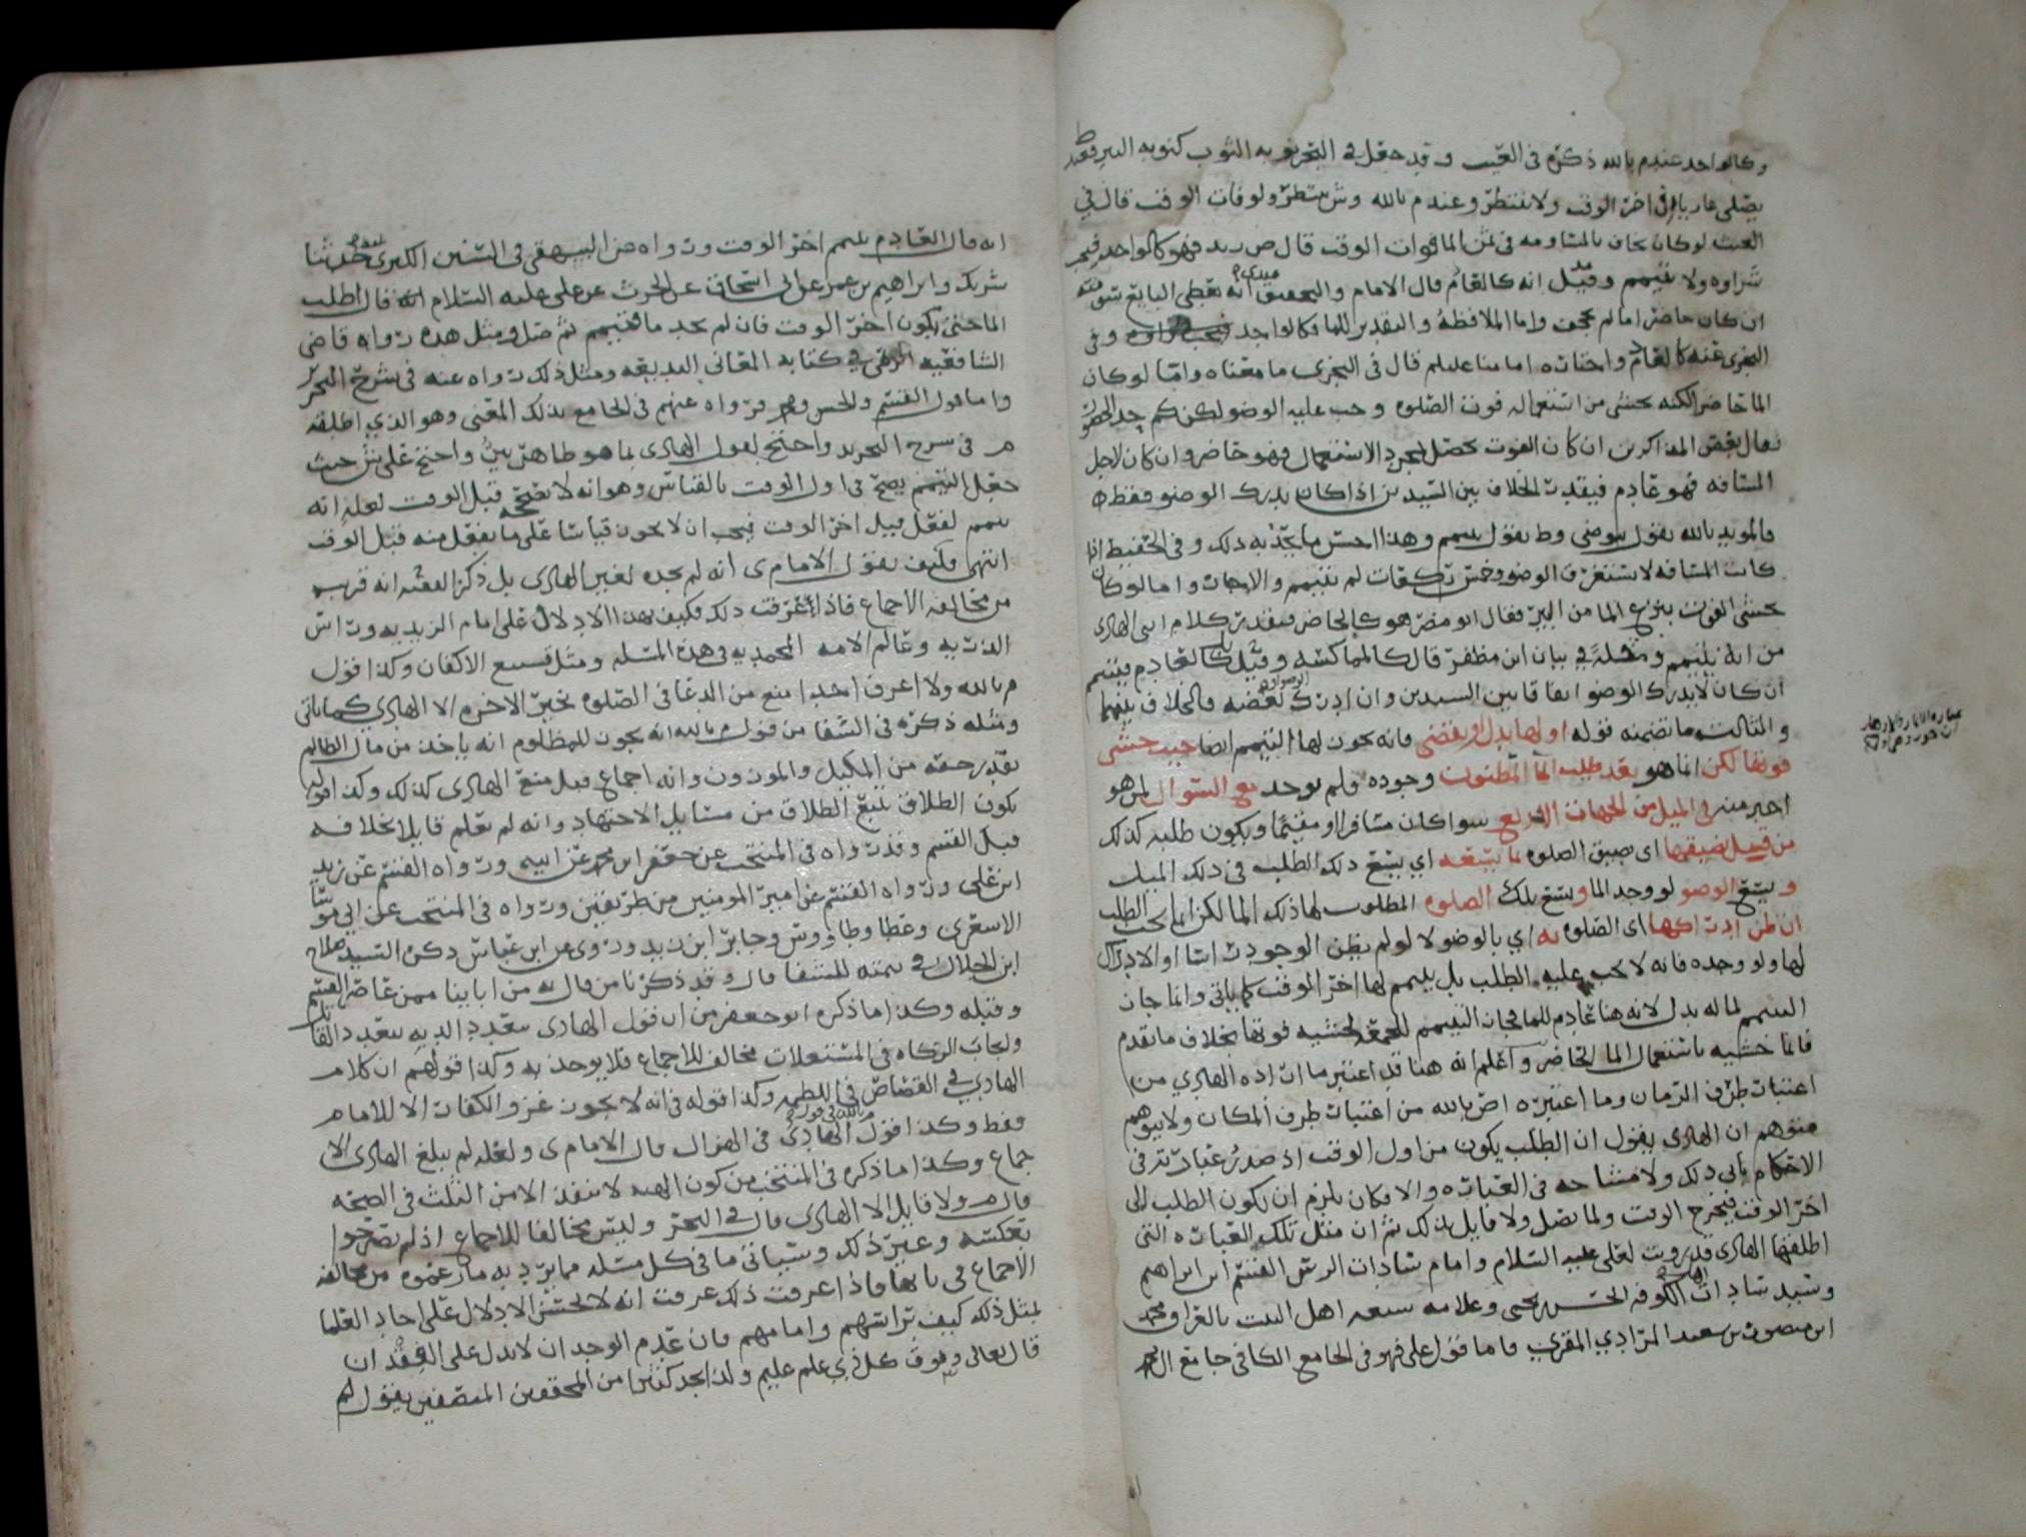 وكالواجد عندم بالله ذكره في الغيث وقد جعل في البحر هبة الثوب كنوبة البير فعند ط
يصلي عاريا في اخر الوقت ولا ينتظر وعند م بالله وش ينتظر ولو فات الوقت قال في
الغيث لو كان يخاف بالمساومه في ثمن الما فوات الوقت قال ص زيد فهو كالواجد فيجب
شراوه ولا يتيمم وقيل انه كالعادم قال الامام والتحقيق انه يعطي البايع
ان كان حاضرا ما لم يجحف واما الملافظة والتقدير للما فكالواجد وفي
البحري عنه كالعادم واختاره امامنا عليلم قال في البحري ما معناه واما لو كان
الما حاضرا لكنه يخشى من استعماله فوت الصلوه وجب عليه الوضو لكن كم حد الحضور
فقال بعض المذاكرين ان كان الفوت يحصل بمجرد الاستعمال فهو حاضر وان كان لاجل
المسافه فهو عادم فيقدر الخلاف بين السيدين اذا كان يدرك الوضو فقط ه
فالمويد بالله يقول يتوضى وط يقول يتيمم وهذا احسن ما يحد به ذلك وفي الحفيظ اذا
كانت المسافه لا تستغرق الوضو وخمس ركعات لم يتيمم والا جاز واما لو كان
يخشى الفوت بنزع الما من البير فقال ابو مضر هو كالحاضر فيقدر كلام ابي الهادي
من انه يتيمم ومثله في بيان ابن مظفر قال كالمماكسه وقيل بل كالعادم فيتيمم
ان كان لا يدرك الوضو اتفاقا بين السيدين وان ادرك بعضه فالخلاف بينهما
والثالث ما تضمنه قوله او لها بدل او يقضى فانه يكون لها التيمم ايضا حيث خشي
فوتها لكن انما هو بعد طلب الما المظنون وجوده فلم يوجد مع السوال لمن هو
اخبر منه في الميل من الجهات الاربع سوا كان مسافرا او مقيما ويكون طلبه كذلك
من قبيل تضيقها اي ضيق الصلوه ما يتسعه اي يتسع ذلك الطلب في ذلك الميل
ويتسع الوضو لو وجد الما ويتسع تلك الصلوه المطلوب لها ذلك الما لكن انما يجب الطلب
ان ظن ادراكها اي الصلوه به اي بالوضو لا لو لم يظن الوجود راسا او الادراك
لها ولو وجده فانه لا يجب عليه الطلب بل يتيمم لها اخر الوقت كما ياتي وانما جاز
التيمم لما له بدل لانه هنا عادم للما فجاز التيمم لخشيه فوتها بخلاف ما تقدم
فانما خشيه باستعمال الما الحاضر واعلم انه هنا قد اعتبر ما اراده الهادي من
اعتبار طرف الزمان وما اعتبره ابو ض بالله من اعتبار طرف المكان ولا يتوهم
متوهم ان الهادي يقول ان الطلب يكون من اول الوقت اذ صدر عبارته في
الاحكام يابى ذلك ولا مشاحه في العباره والا فكان يلزم ان يكون الطلب الى
اخر الوقت فيخرج الوقت ولما يصل ولا قايل بذلك ثم ان مثل تلك العباره التي
اطلقها الهادي قد رويت لعلي عليه السلام وامام سادات الرس القسم ابن ابراهيم
وسيد سادات الكوفه الحسن بن يحيى وعلامه شيعه اهل البيت بالعراق محمد
ابن منصور بن سعيد المرادي المقري فاما قول علي فهو في الجامع الكافي جامع ال محمد
انه قال العادم يتيمم اخر الوقت ورواه عنه البيهقي في السنن الكبرى حدثنا
شريك وابراهيم بن عمر عن ابي اسحاق عن الحرث عن علي عليه السلام انه قال اطلب
الما حتى يكون اخر الوقت فان لم تجد ما فتيمم ثم صل ومثل هذه رواه قاضي
الشافعيه في كتابه المعاني البديعه ومثل ذلك رواه عنه في شرح التحرير
واما قول القسم والحسن ومحمد فرواه عنهم في الجامع بذلك المعنى وهو الذي اطلقه
م في شرح التحريد واحتج لقول الهادي بما هو ظاهر بين واحتج على ش حيث
جعل التيمم يصح في اول الوقت بالقياس وهو انه لا يصح قبل الوقت لعله انه
تيمم لفعل قبل اخر الوقت فيجب ان لا يكون قياسا على ما يفعل منه قبل الوقت
انتهى فكيف يقول الامام ى انه لم يجده لغير الهادي بل ذكر الفقيه انه قريب
من مخالفه الاجماع فاذا عرفت ذلك فكيف بهذا الادلال على امام الزيديه وراس
الذريه وعالم الامه المحمديه في هذه المسله ومثل تسبيع الاكفان وكذا قول
م بالله ولا اعرف احدا منع من الدعا في الصلوه بخير الاخره الا الهادي كما ياتي
ومثله ذكره في الشفا من قول م بالله انه يجوز للمظلوم انه ياخذ من مال الظالم
بقدر حقه من المكيل والموزون وانه اجماع قبل منع الهادي كذلك وكذا قوله
بكون الطلاق يتبع الطلاق من مسايل الاجتهاد وانه لم نعلم قايلا بخلافه
قبل القسم وقد رواه في المنتخب عن جعفر ابن محمد عن ابيه ورواه القسم عن زيد
ابن علي ورواه القسم عن امير المومنين من طريقين ورواه في المنتخب عن ابي موسى
الاشعري وعطا وطاووس وجابر ابن زيد وروى عن ابن عباس ذكره السيد صلاح
ابن الجلال في تتمته للشفا قال وقد ذكرنا من قال به من ابائنا ممن عاصر القسم
وقبله وكذا ما ذكره ابو جعفر من ان قول الهادي بتعدد الديه بتعدد القاتل
وايجاب الزكاه في المستغلات مخالف للاجماع فلا يوخذ به وكذا قولهم ان كلام
الهادي في القصاص في اللطمه وكذا قوله في انه لا يجوز غزو الكفار الا للامام
فقط وكذا قول م بالله في قول الهادي في الهزال قال الامام ى ولعله لم يبلغ الهادي الا
جماع وكذا ما ذكره في المنتخب من كون الهبه لا تنفذ الا من الثلث في الصحه
قال م ولا قايل الا الهادي قال في البحر وليس مخالفا للاجماع اذ لم يصرحوا
بعكسه وغير ذلك وسياتي ما في كل مسله مما يرد به ما زعموه من مخالفه
الاجماع في بابها فاذا عرفت ذلك عرفت انه لا يحسن الادلال على احاد العلما
لمثل ذلك كيف براسهم وامامهم فان عدم الوجدان لا يدل على الفقد ان
قال تعالى وفوق كل ذي علم عليم ولذا تجد كثيرا من المحققين المنصفين يقول لم